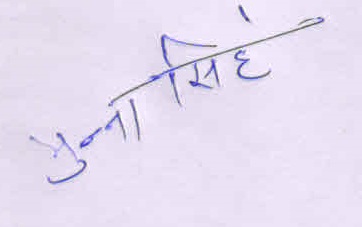 मुन्ना सिहं